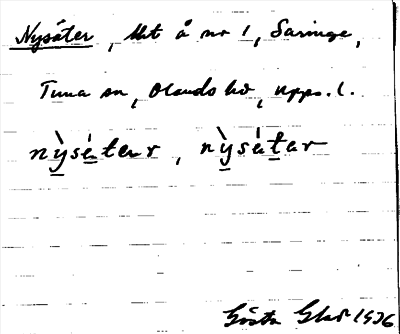 Nysäter, litt å nr 1, Saringe,
Tuna sn, Olands hd, Upps. l.
nỳsáteᴜr, nỳsátar
Gösta 1936